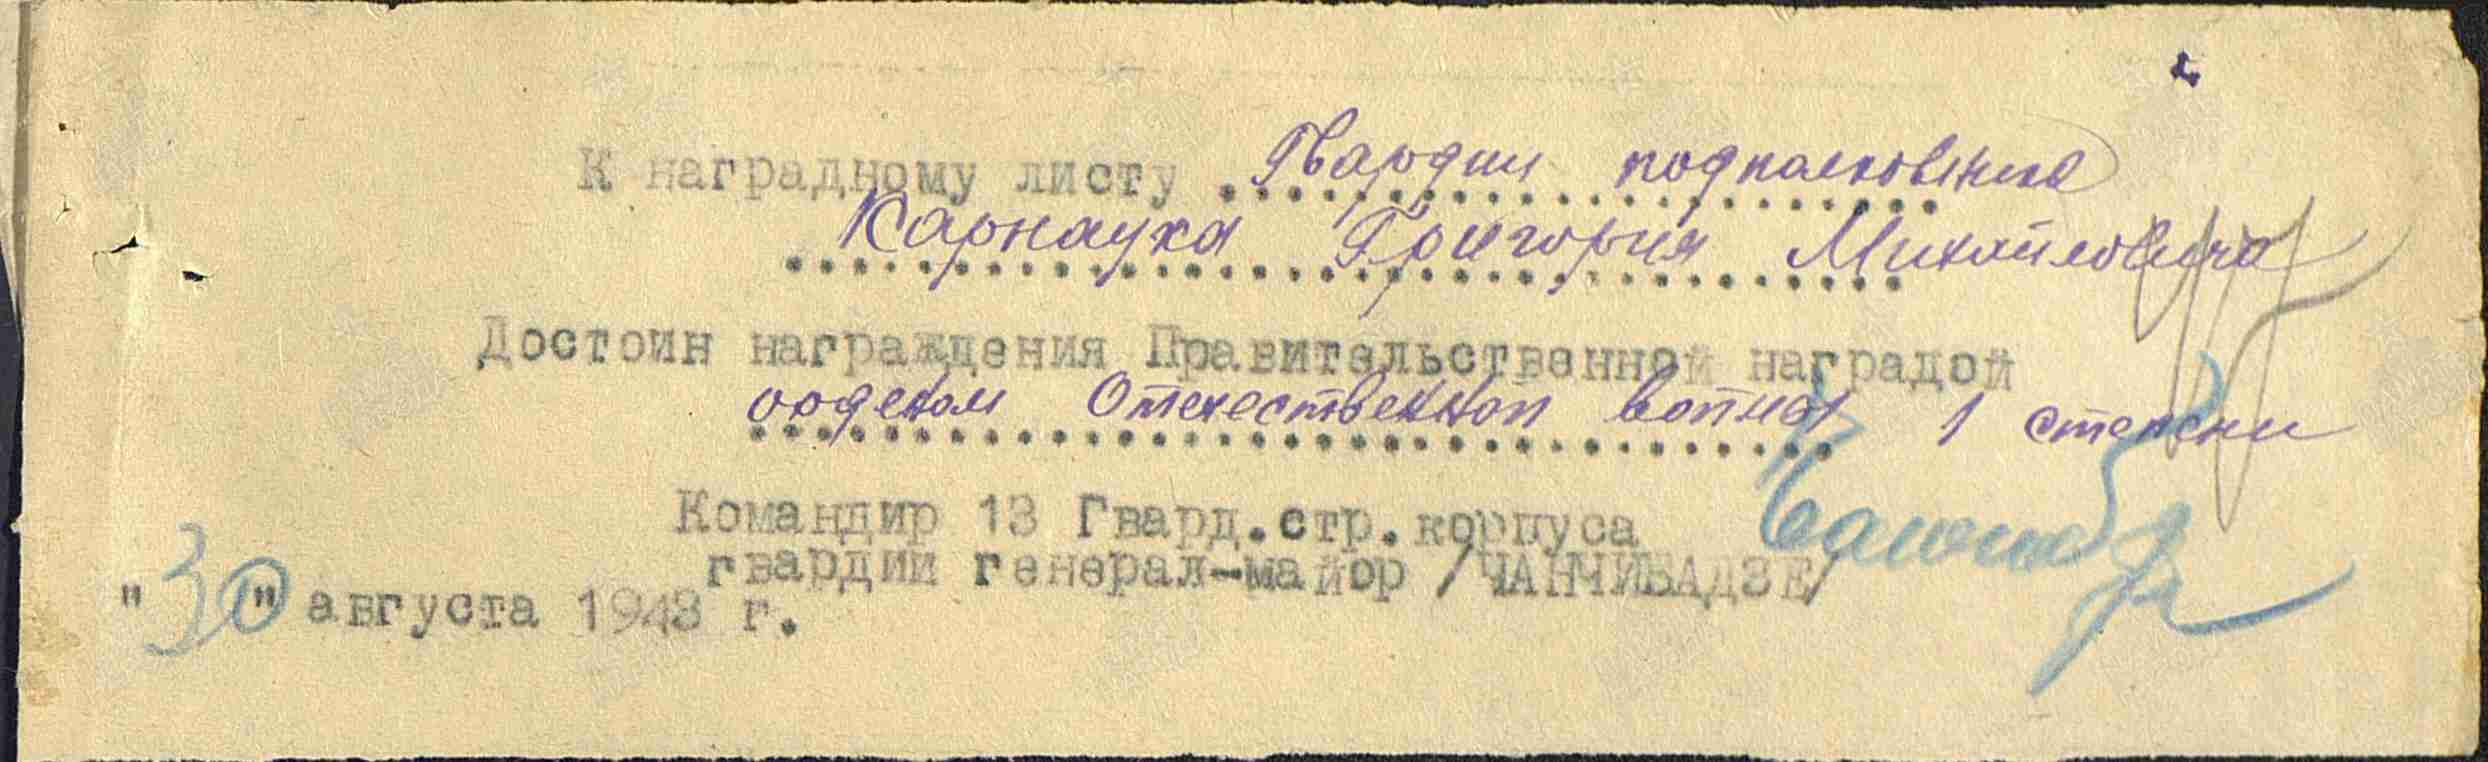 К наградному листу Гвардии подполковника
Карнауха Григория Михайловича
Достоин награждения Правительственной наградой
орденом Отечественной войны 1 степени
Командир 13 Гвард.стр.корпуса
гвардии генерал-майор /ЧАНЧИБАДЗЕ/
"30" августа 1943 г.